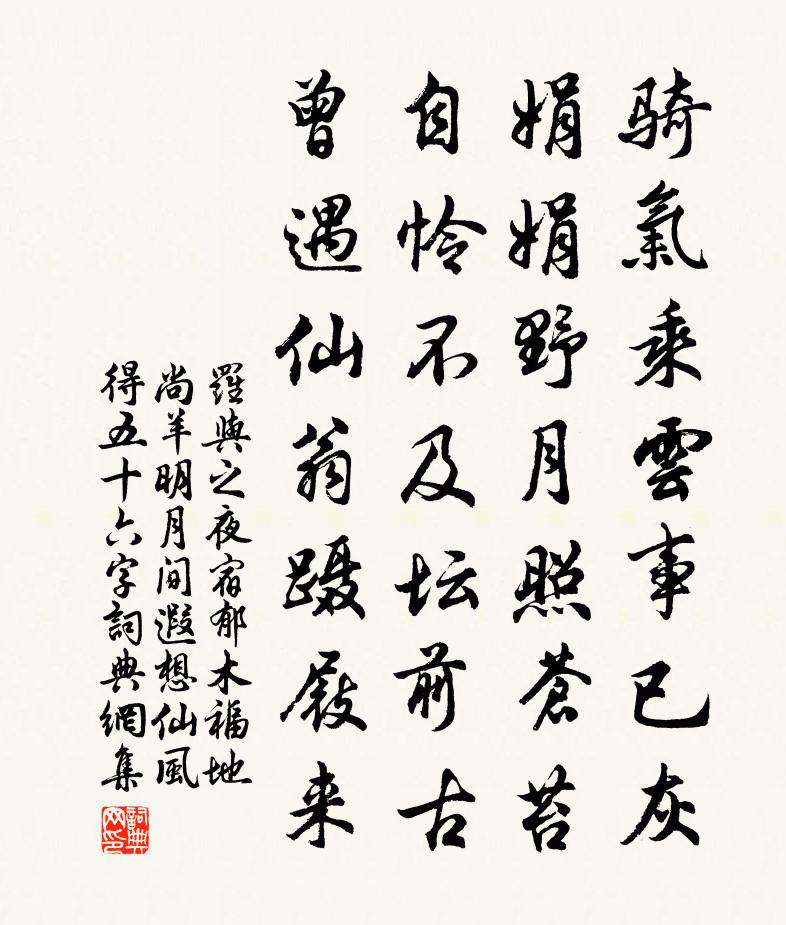 骑氣乘雲事已灰
娟娟野月照蒼苔
自怜不及坛前古
曾遇仙翁蹑屐来
羅與之夜宿郁木福地
尚羊明月间遐想仙風
得五十六字詞典網集
詞典网印